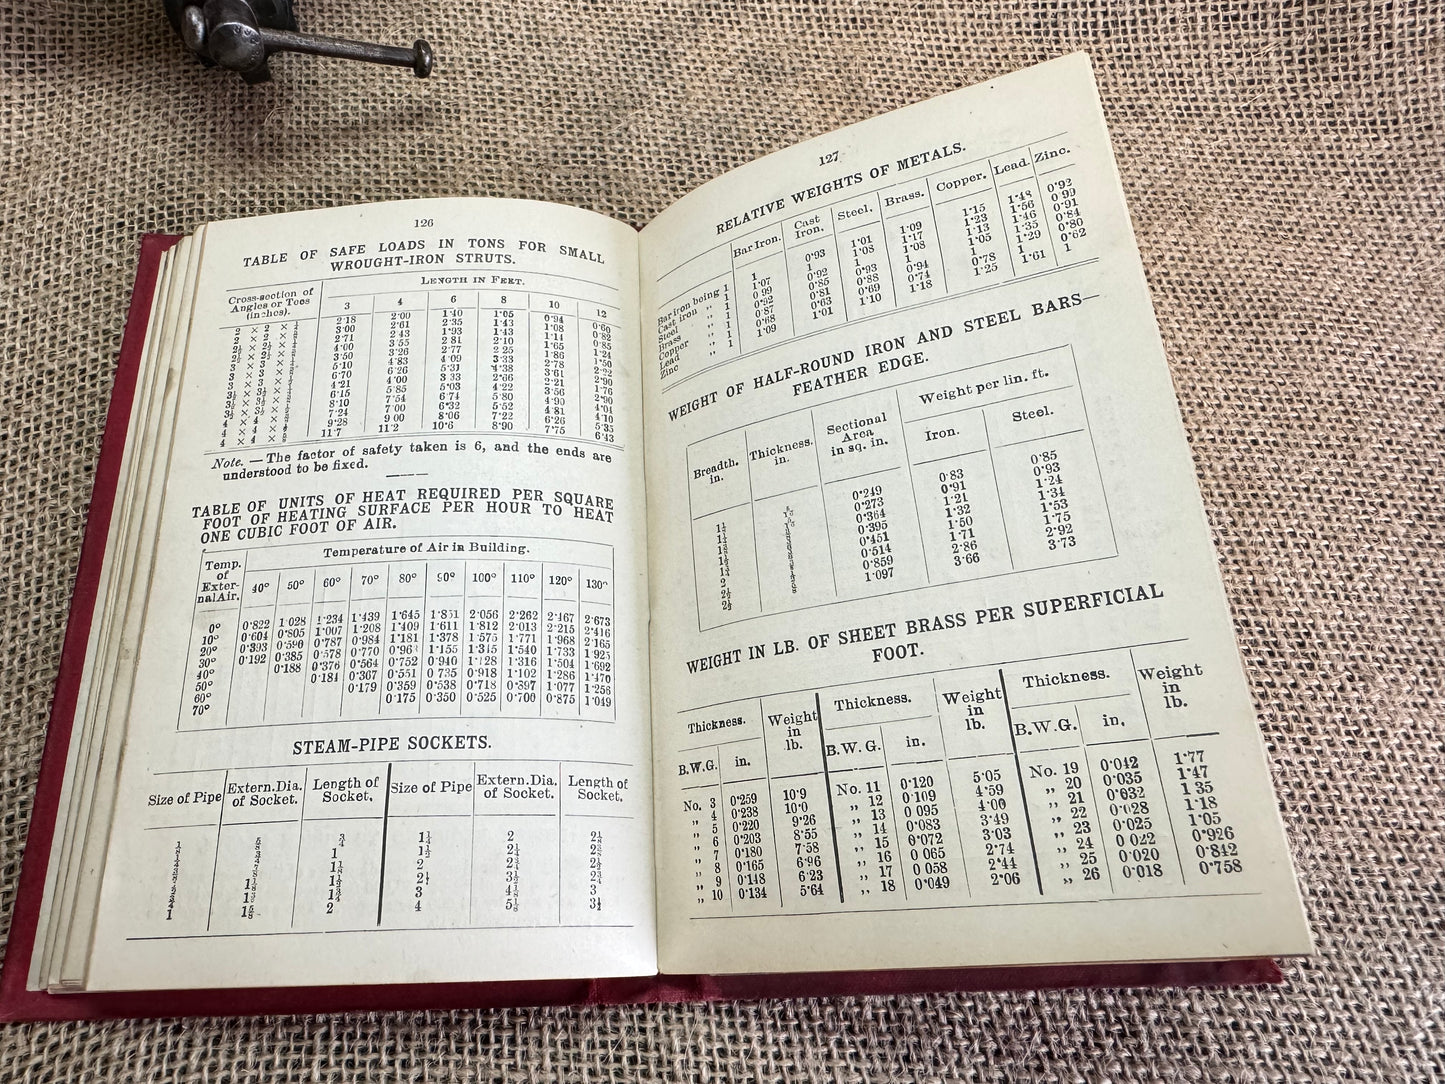 126
TABLE OF SAFE LOADS IN TONS FOR SMALL
WROUGHT-IRON STRUTS.
Cross-section of
Angles or Tees
(inches).
LENGTH IN FEET.
3 4 6 8 10 12
2·18 2·00 1·40 1·05 0·94 0·60
3·00 2·61 2·35 1·43 1·08 0·82
2·71 2·43 1·93 1·43 1·14 0·85
4·00 3·55 2·81 2·10 1·65 1·24
3·50 3·26 2·77 2·25 1·86 1·50
5·10 4·83 4·09 3·33 2·78 2·22
6·70 6·26 5·31 4·38 3·61 2·90
4·21 4·00 3·33 2·66 2·21 1·76
6·15 5·85 5·03 4·22 3·56 2·90
8·10 7·54 6·74 5·80 4·90 4·04
7·24 7·00 6·32 5·52 4·81 4·10
9·28 9·00 8·06 7·22 6·26 5·35
11·7 11·2 10·6 8·90 7·75 6·43
Note.—The factor of safety taken is 6, and the ends are
understood to be fixed.
TABLE OF UNITS OF HEAT REQUIRED PER SQUARE
FOOT OF HEATING SURFACE PER HOUR TO HEAT
ONE CUBIC FOOT OF AIR.
Temp.
of
Exter-
nal Air.
Temperature of Air in Building.
40° 50° 60° 70° 80° 90° 100° 110° 120° 130°
0° 0·822 1·028 1·234 1·439 1·645 1·851 2·056 2·262 2·467 2·673
10° 0·604 0·805 1·007 1·208 1·409 1·611 1·812 2·013 2·215 2·416
20° 0·393 0·590 0·787 0·984 1·181 1·378 1·575 1·771 1·968 2·165
30° 0·192 0·385 0·578 0·770 0·963 1·155 1·345 1·540 1·733 1·925
40° 0·188 0·376 0·564 0·752 0·940 1·128 1·316 1·504 1·692
50° 0·184 0·367 0·551 0·735 0·918 1·102 1·286 1·470
60° 0·179 0·359 0·538 0·718 0·897 1·077 1·256
70° 0·175 0·350 0·525 0·700 0·875 1·049
STEAM-PIPE SOCKETS.
Size of Pipe Extern. Dia. of Socket. Length of Socket. Size of Pipe Extern. Dia. of Socket. Length of Socket.
1¼ 2
1½ 2¼
2
3
1 1⅝ 2 4 5⅛ 3½
127
RELATIVE WEIGHTS OF METALS.
Bar Iron. Cast Iron. Steel. Brass. Copper. Lead. Zinc.
Bar iron being 1 1 0·93 1·01 1·09 1·15 1·48 0·92
Cast iron „ 1 1·07 1 1·08 1·17 1·23 1·56 0·99
Steel „ 1 0·99 0·92 1 1·08 1·13 1·46 0·91
Brass „ 1 0·92 0·85 0·93 1 1·05 1·35 0·84
Copper „ 1 0·87 0·81 0·88 0·94 1 1·29 0·80
Lead „ 1 0·68 0·63 0·69 0·74 0·78 1 0·62
Zinc „ 1 1·09 1·01 1·10 1·18 1·25 1·61 1
WEIGHT OF HALF-ROUND IRON AND STEEL BARS—
FEATHER EDGE.
Breadth. in. Thickness. in. Sectional Area in sq. in. Weight per lin. ft.
Iron. Steel.
0·249 0·83 0·85
0·273 0·91 0·93
0·364 1·21 1·24
0·395 1·32 1·34
0·451 1·50 1·53
0·514 1·71 1·75
0·859 2·86 2·92
1·097 3·66 3·73
WEIGHT IN LB. OF SHEET BRASS PER SUPERFICIAL
FOOT.
Thickness. Weight in lb. Thickness. Weight in lb. Thickness. Weight in lb.
B.W.G. in. B.W.G. in. B.W.G. in.
No. 3 0·259 10·9 No. 11 0·120 5·05 No. 19 0·042 1·77
„ 4 0·238 10·0 „ 12 0·109 4·59 „ 20 0·035 1·47
„ 5 0·220 9·26 „ 13 0·095 4·00 „ 21 0·032 1·35
„ 6 0·203 8·55 „ 14 0·083 3·49 „ 22 0·028 1·18
„ 7 0·180 7·58 „ 15 0·072 3·03 „ 23 0·025 1·05
„ 8 0·165 6·96 „ 16 0·065 2·74 „ 24 0·022 0·926
„ 9 0·148 6·23 „ 17 0·058 2·44 „ 25 0·020 0·842
„ 10 0·134 5·64 „ 18 0·049 2·06 „ 26 0·018 0·758